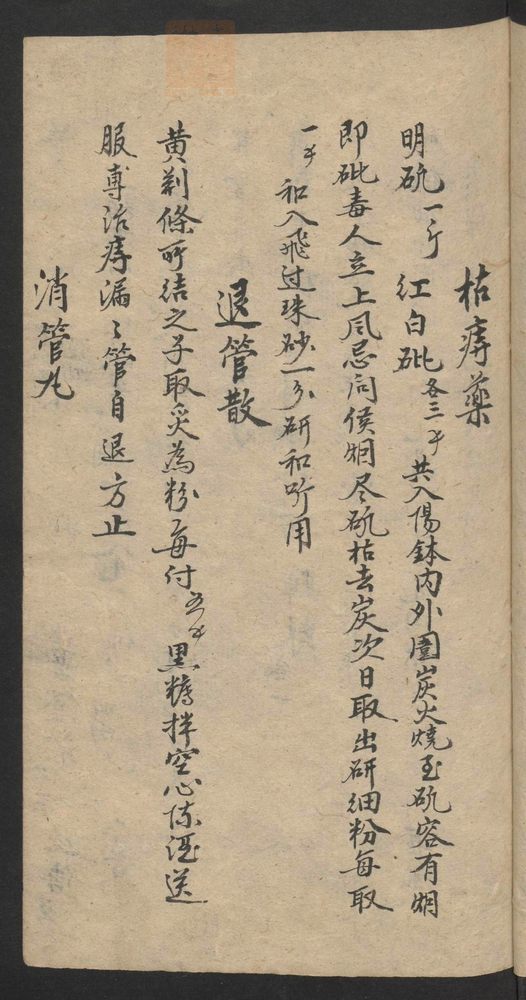 枯痔藥
明矾一斤 红白砒各三𠦑共入陽鉢内外圍炭火燒至矾容有烟
即砒毒人立上风忌闻候烟尽矾枯去炭次日取出研细粉每取
一𠦑和入飛过珠砂一分研和听用
退管散
黄荆條所结之子取炙為粉每付五𠦑 黑糖拌空心陈酒送
服専治痔漏〻管自退方止
消管丸